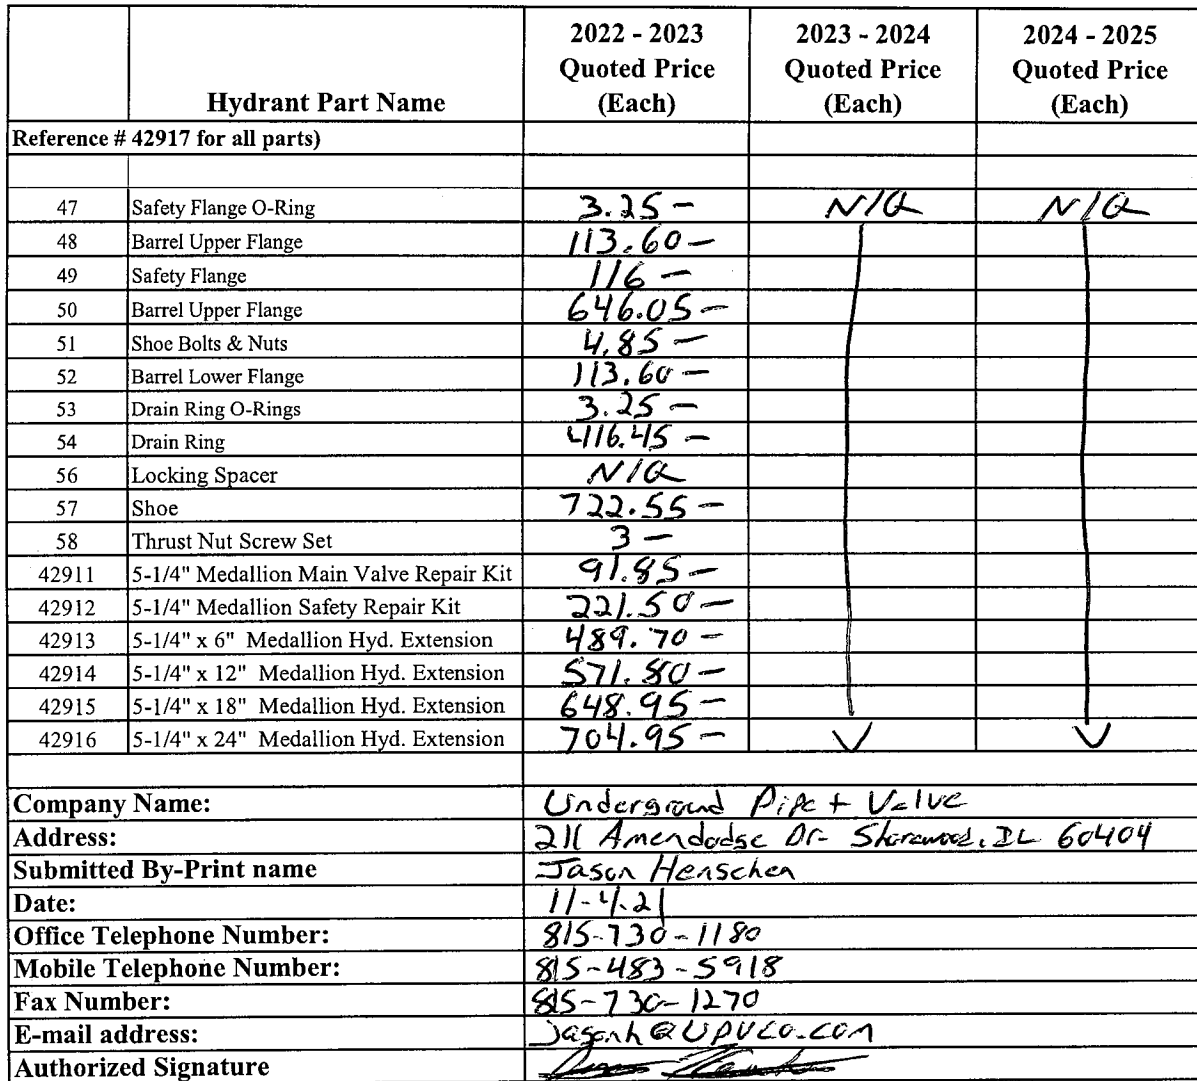 Hydrant Part Name 2022 - 2023 Quoted Price (Each) 2023 - 2024 Quoted Price (Each) 2024 - 2025 Quoted Price (Each)
Reference # 42917 for all parts)
47 Safety Flange O-Ring 3.25 - N/Q N/Q
48 Barrel Upper Flange 113.60 -
49 Safety Flange 116 -
50 Barrel Upper Flange 646.05 -
51 Shoe Bolts & Nuts 4.85 -
52 Barrel Lower Flange 113.60 -
53 Drain Ring O-Rings 3.25 -
54 Drain Ring 416.45 -
56 Locking Spacer N/Q
57 Shoe 722.55 -
58 Thrust Nut Screw Set 3 -
42911 5-1/4" Medallion Main Valve Repair Kit 91.85 -
42912 5-1/4" Medallion Safety Repair Kit 221.50 -
42913 5-1/4" x 6" Medallion Hyd. Extension 489.70 -
42914 5-1/4" x 12" Medallion Hyd. Extension 571.80 -
42915 5-1/4" x 18" Medallion Hyd. Extension 648.95 -
42916 5-1/4" x 24" Medallion Hyd. Extension 704.95 -
Company Name: Underground Pipe + Valve
Address: 211 Amendodge Dr- Shorewood, IL 60404
Submitted By-Print name Jason Henschen
Date: 11-4-21
Office Telephone Number: 815-730-1180
Mobile Telephone Number: 815-483-5918
Fax Number: 815-730-1270
E-mail address: Jasonh@UPVCO.COM
Authorized Signature